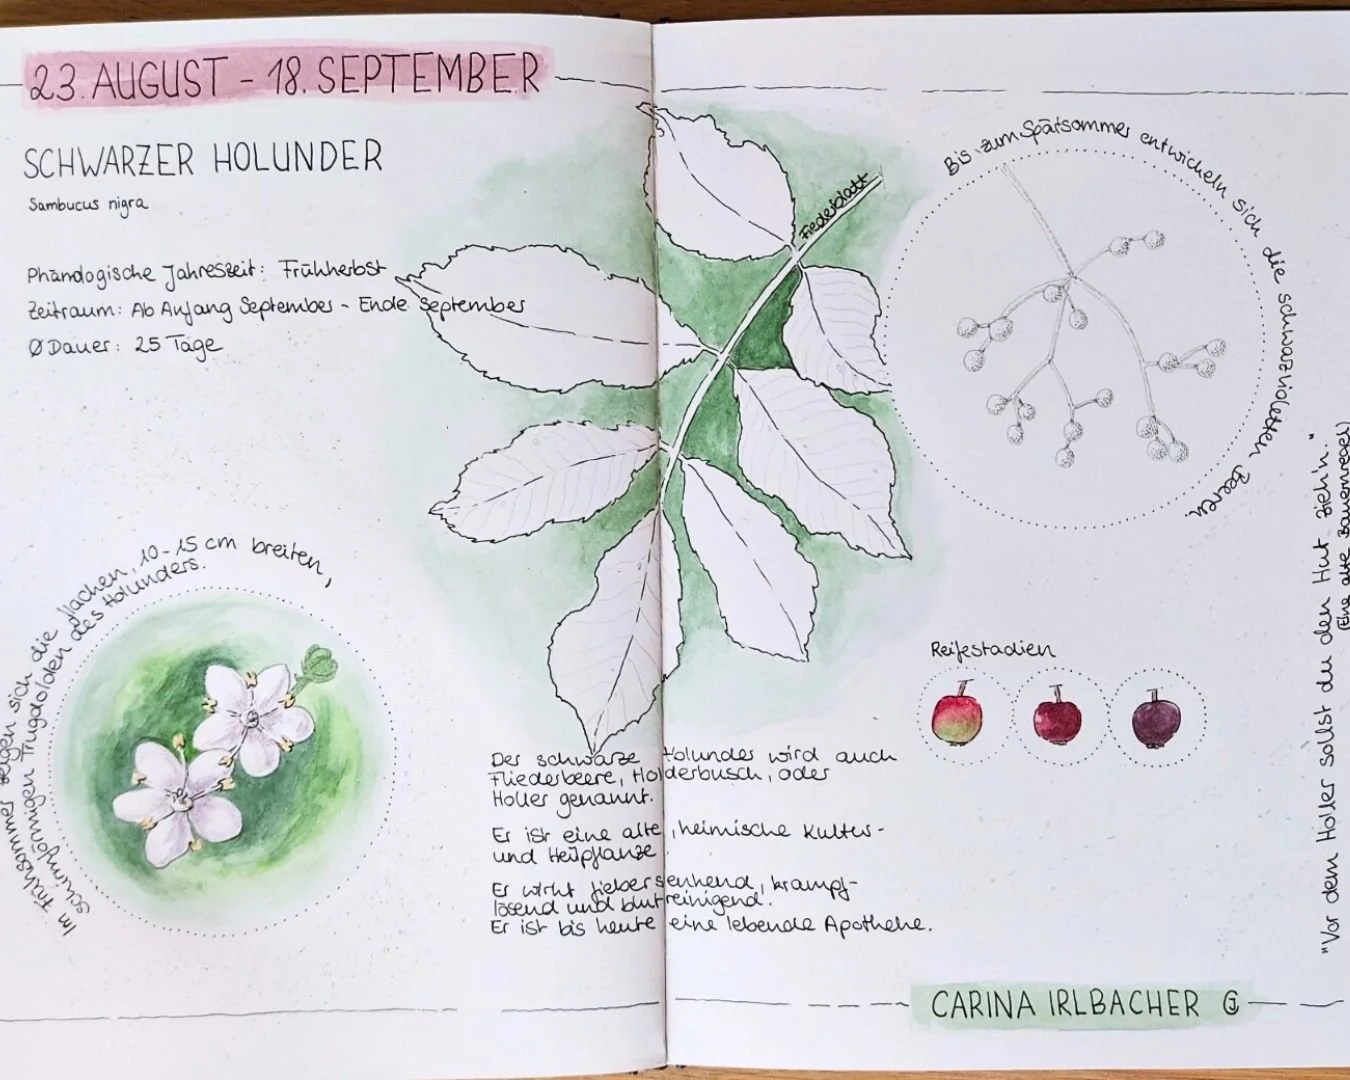 23. AUGUST - 18. SEPTEMBER
SCHWARZER HOLUNDER
Sambucus nigra
Phänologische Jahreszeit: Frühherbst
Zeitraum: Ab Anfang September - Ende September
Ø Dauer: 25 Tage
Im Frühsommer zeigen sich die flachen, 10-15 cm breiten,
schirmförmigen Trugdolden des Holunders.
Fiederblatt
Bis zum Spätsommer entwickeln sich die schwarzvioletten Beeren
Reifestadien
Der schwarze Holunder wird auch
Fliederbeere, Holderbusch, oder
Holler genannt.
Er ist eine alte, heimische Kultur-
und Heilpflanze
Er wirkt fiebersenkend, krampf-
lösend und blutreinigend.
Er ist bis heute eine lebende Apotheke.
"Vor dem Holler sollst du den Hut zieh'n."
(Eine alte Bauernregel)
CARINA IRLBACHER